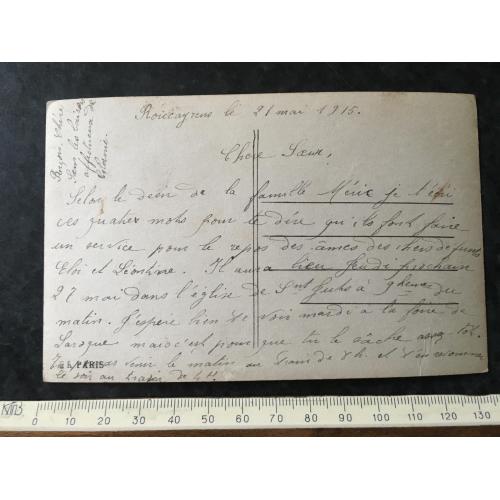 le 21 mai 1915.
Chère Sœur,
Selon le désir de la famille je t'écri
ces quatres mots pour te dire qu'ils font faire
un service pour le repos des âmes des chers défunts
Eloi et Léontine. Il aura lieu Jeudi prochain
27 mai dans l'église de St à 9 heures du
matin. J'espère bien te voir mardi à la foire de
Laroque mais c'est pour que tu le sâche
venir le matin au train de 8 h et
le soir au train de 4 H.
les baisers
affectueux de
PARIS
0 10 20 30 40 50 60 70 80 90 100 110 120 130